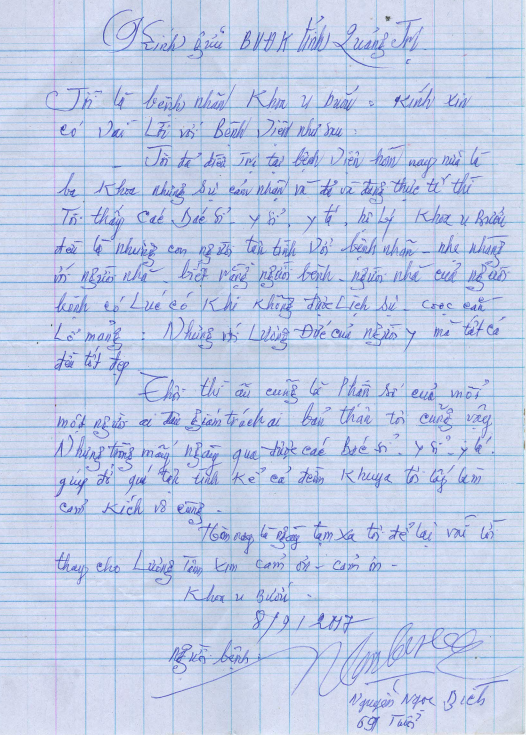 Kính gửi BVĐK tỉnh Quảng Trị.
Tôi là bệnh nhân Khoa u bướu - Kính xin
có vài Lời với Bệnh Viện như sau:
- Tôi đã điều trị tại bệnh viện hôm nay nữa là
ba Khoa nhưng sự cảm nhận và đã và đang thực tế thì
Tôi thấy Các Bác sĩ, y sĩ, y tá, hộ lý Khoa u Bướu
đều là những con người tận tình với bệnh nhân - nhẹ nhàng
với người nhà - biết rằng người bệnh - người nhà của người
bệnh có Lúc có Khi Không được Lịch sự - cọc cằn
Lỗ mãng: Nhưng với Lương Đức của người y mà tất cả
đều tốt đẹp
Thôi thì âu cũng là Phần số của mỗi
một người ai đâu giám trách ai bản thân tôi cũng vậy
Nhưng trong mấy ngày qua được các Bác sĩ, y sĩ, y tá
giúp đỡ quá tận tình Kể cả đêm Khuya tôi lấy làm
cảm Kích vô cùng.
Hôm nay là ngày tạm xa tôi để lại vài lời
thay cho Lương Tâm xin cảm ơn - cảm ơn -
Khoa u Bướu -
8/9/2017
Người bệnh:
Nguyễn Ngọc Bích
69 Tuổi